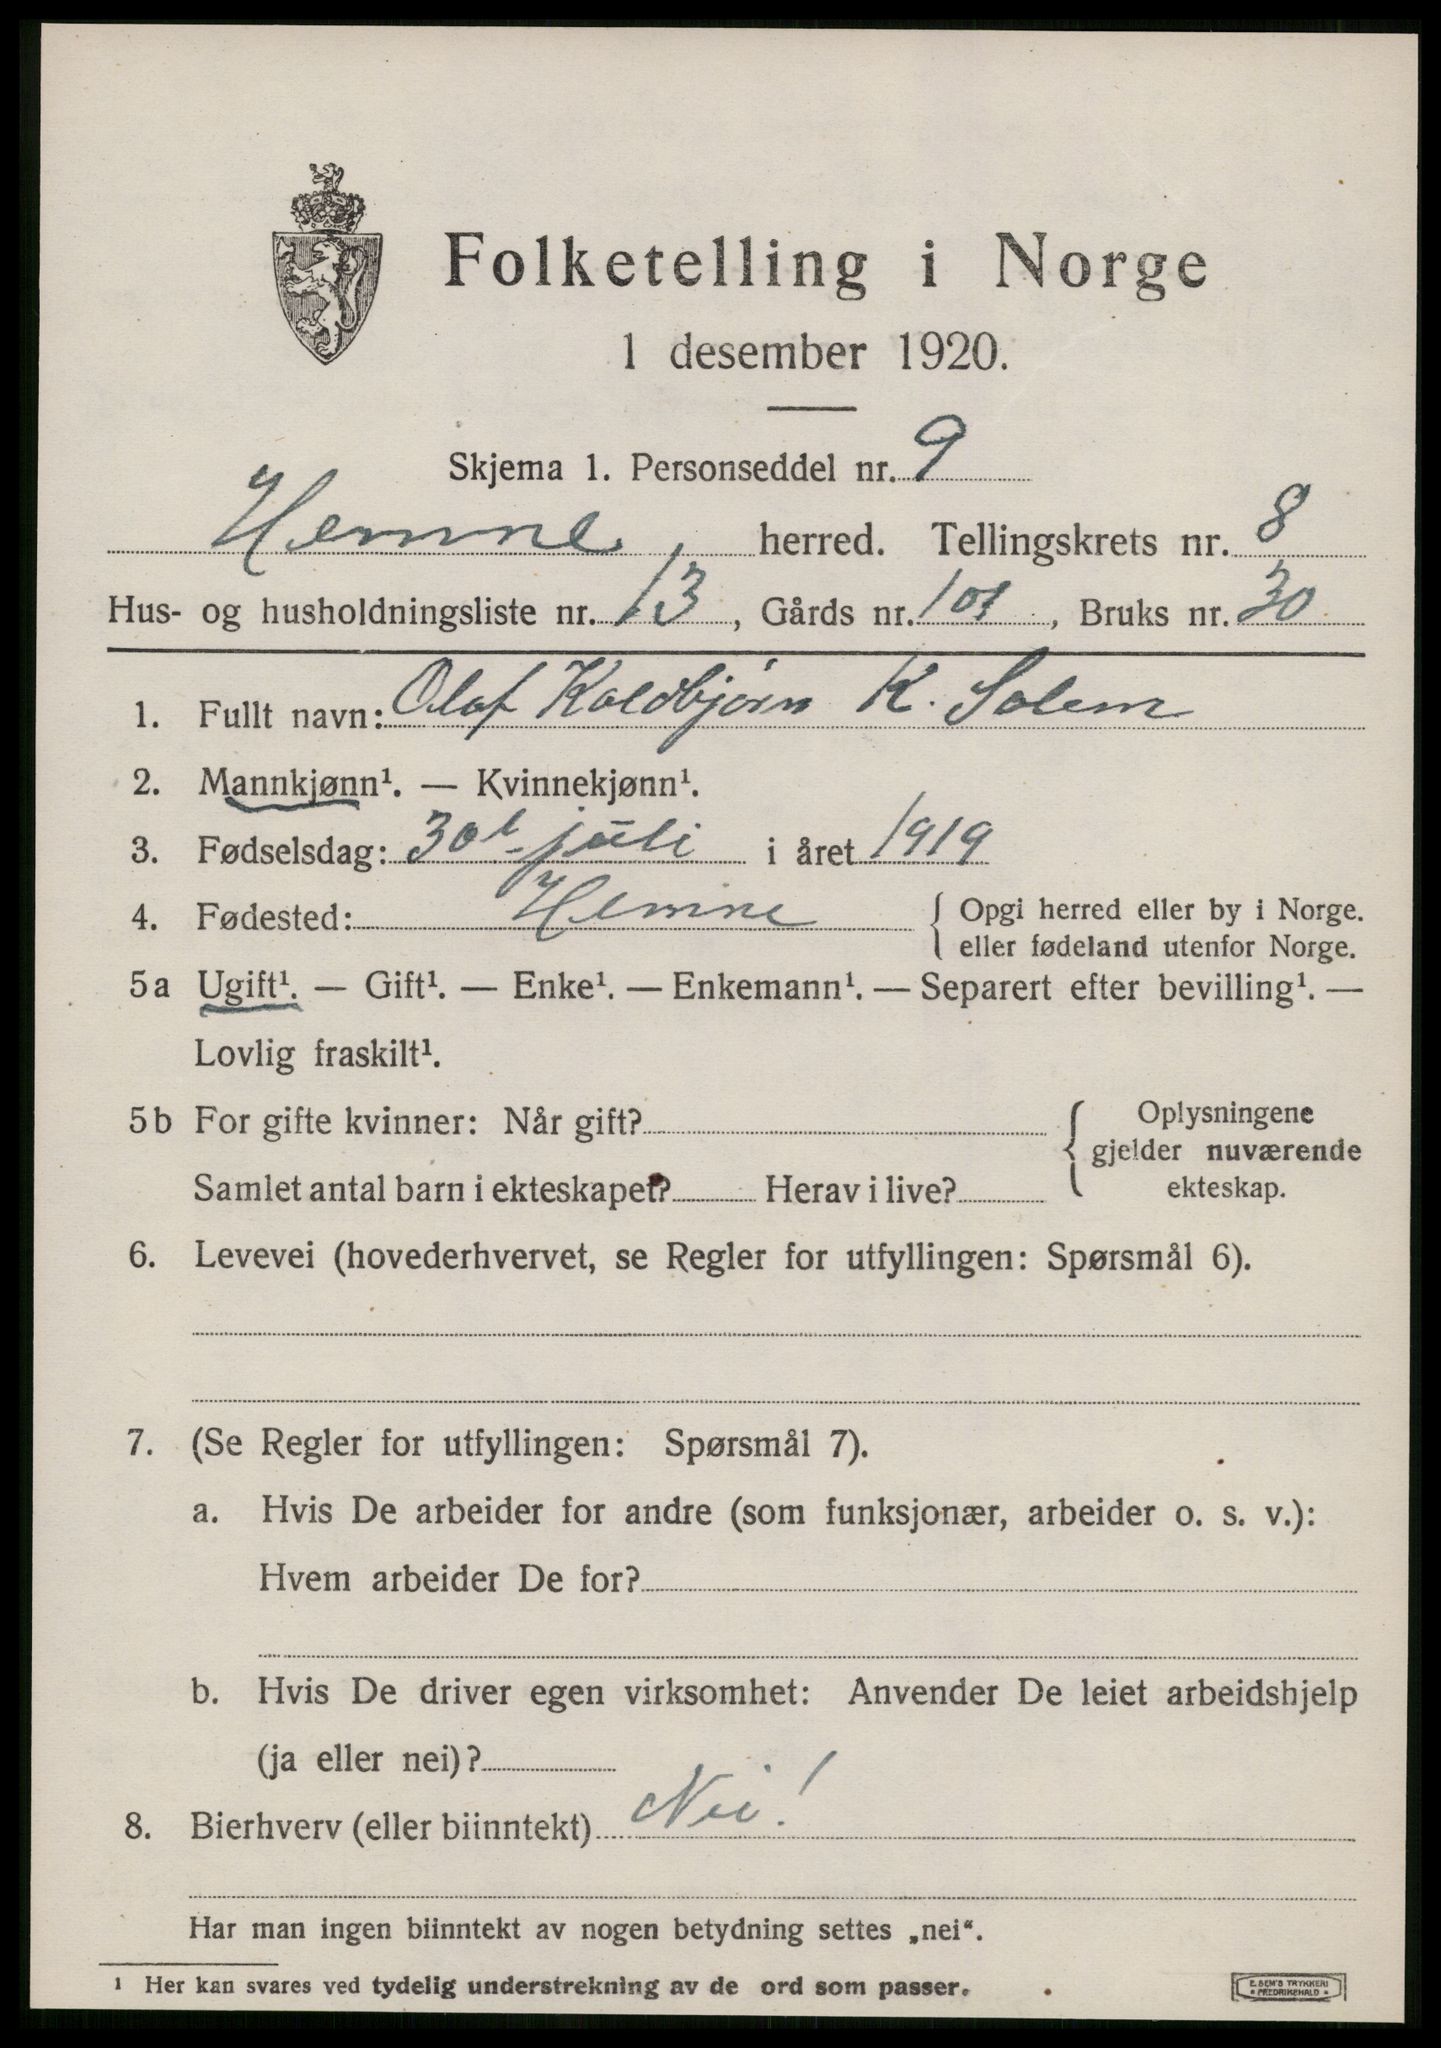 Folketelling i Norge
1 desember 1920.
Skjema 1. Personseddel nr. 9
Hemne, herred. Tellingskrets nr. 8
Hus- og husholdningsliste nr. 13, Gårds nr. 101, Bruks nr. 30
1. Fullt navn: Olaf Koldbjørn K. Solem
2. Mannkjønn¹. — Kvinnekjønn¹.
3. Fødselsdag: 30t juli i året 1919
4. Fødested: Hemne { Opgi herred eller by i Norge.
eller fødeland utenfor Norge.
5a Ugift¹. — Gift¹. — Enke¹. — Enkemann¹. — Separert efter bevilling¹. —
Lovlig fraskilt¹.
5b For gifte kvinner: Når gift? { Oplysningene
gjelder nuværende
Samlet antal barn i ekteskapet? Herav i live? ekteskap.
6. Levevei (hovederhvervet, se Regler for utfyllingen: Spørsmål 6).
7. (Se Regler for utfyllingen: Spørsmål 7).
a. Hvis De arbeider for andre (som funksjonær, arbeider o. s. v.):
Hvem arbeider De for?
b. Hvis De driver egen virksomhet: Anvender De leiet arbeidshjelp
(ja eller nei)?
8. Bierhverv (eller biinntekt) Nei!
Har man ingen biinntekt av nogen betydning settes „nei“.
¹ Her kan svares ved tydelig understrekning av de ord som passer.
E. SEM'S TRYKKERI
FREDRIKSHALD